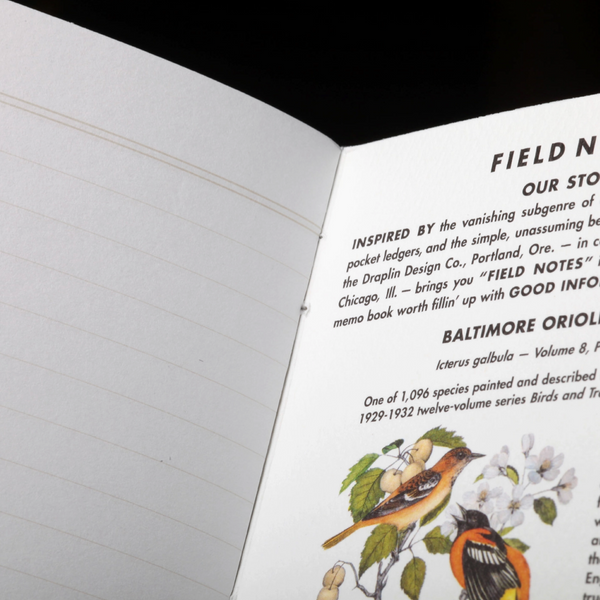 FIELD N
OUR STO
INSPIRED BY the vanishing subgenre of
pocket ledgers, and the simple, unassuming be
the Draplin Design Co., Portland, Ore. — in c
Chicago, Ill. — brings you "FIELD NOTES"
memo book worth fillin' up with GOOD INFO
BALTIMORE ORIOL
Icterus galbula — Volume 8, P
One of 1,096 species painted and described
1929-1932 twelve-volume series Birds and Tr
w
a
th
En
tru